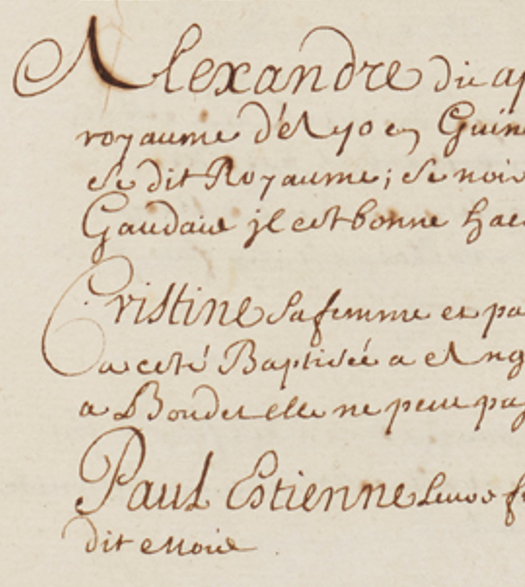 Alexandre dit ap
royaume d'el yo en Guin
Ce dit Royaume; Ce noir
Gaudaie jl est bonne hac
Cristine Sa femme et pa
a eté Baptisée a
a Boudet elle ne peut pa
Paul Estienne Leur fi
dit